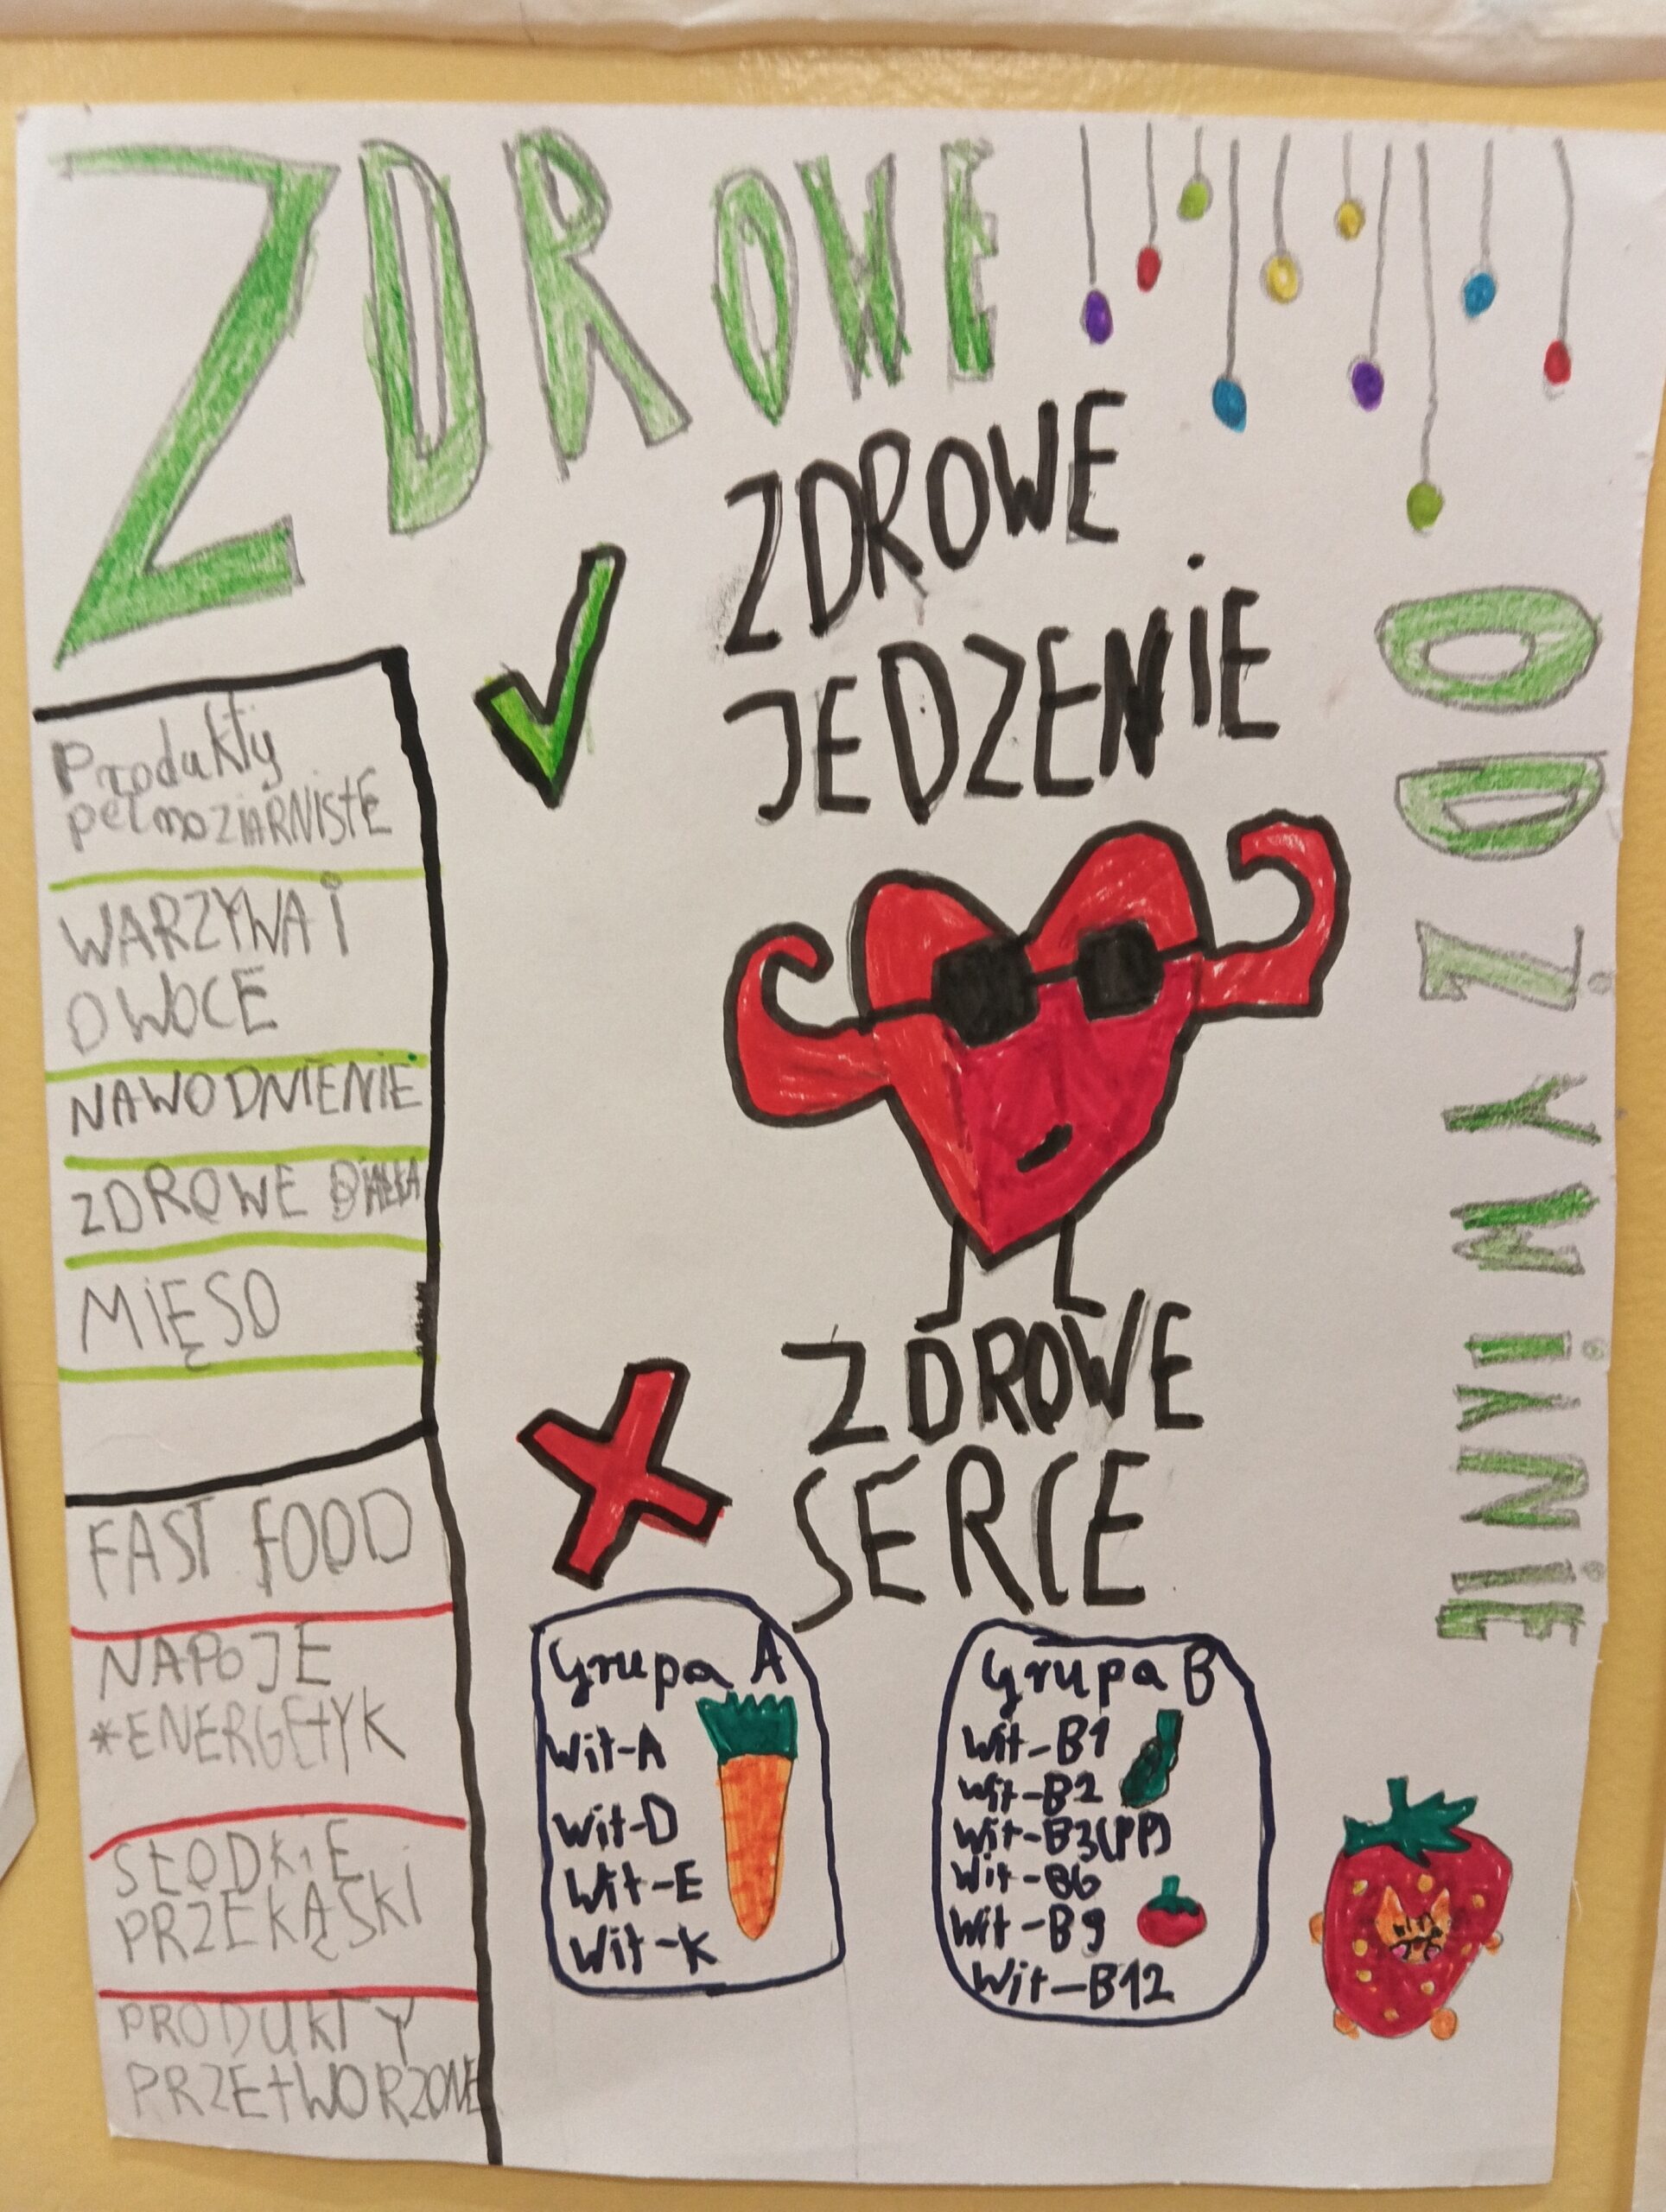 ZDROWE
ODŻYWIANIE
ZDROWE
JEDZENiE
ZDROWE
SERCE
Produkty
pełnoZIARNISTE
WARZYWA i
OWOCE
NAWODNIENIE
ZDROWE BiAŁKA
MiĘSO
FAST FOOD
NAPOJE
*ENERGEtYK
SŁODKiE
PRZEKĄSKi
PRODUKTY
PRZEtWORZONE
Grupa A
Wit-A
Wit-D
Wit-E
Wit-K
Grupa B
Wit-B1
Wit-B2
Wit-B3(PP)
Wit-B6
Wit-B9
Wit-B12